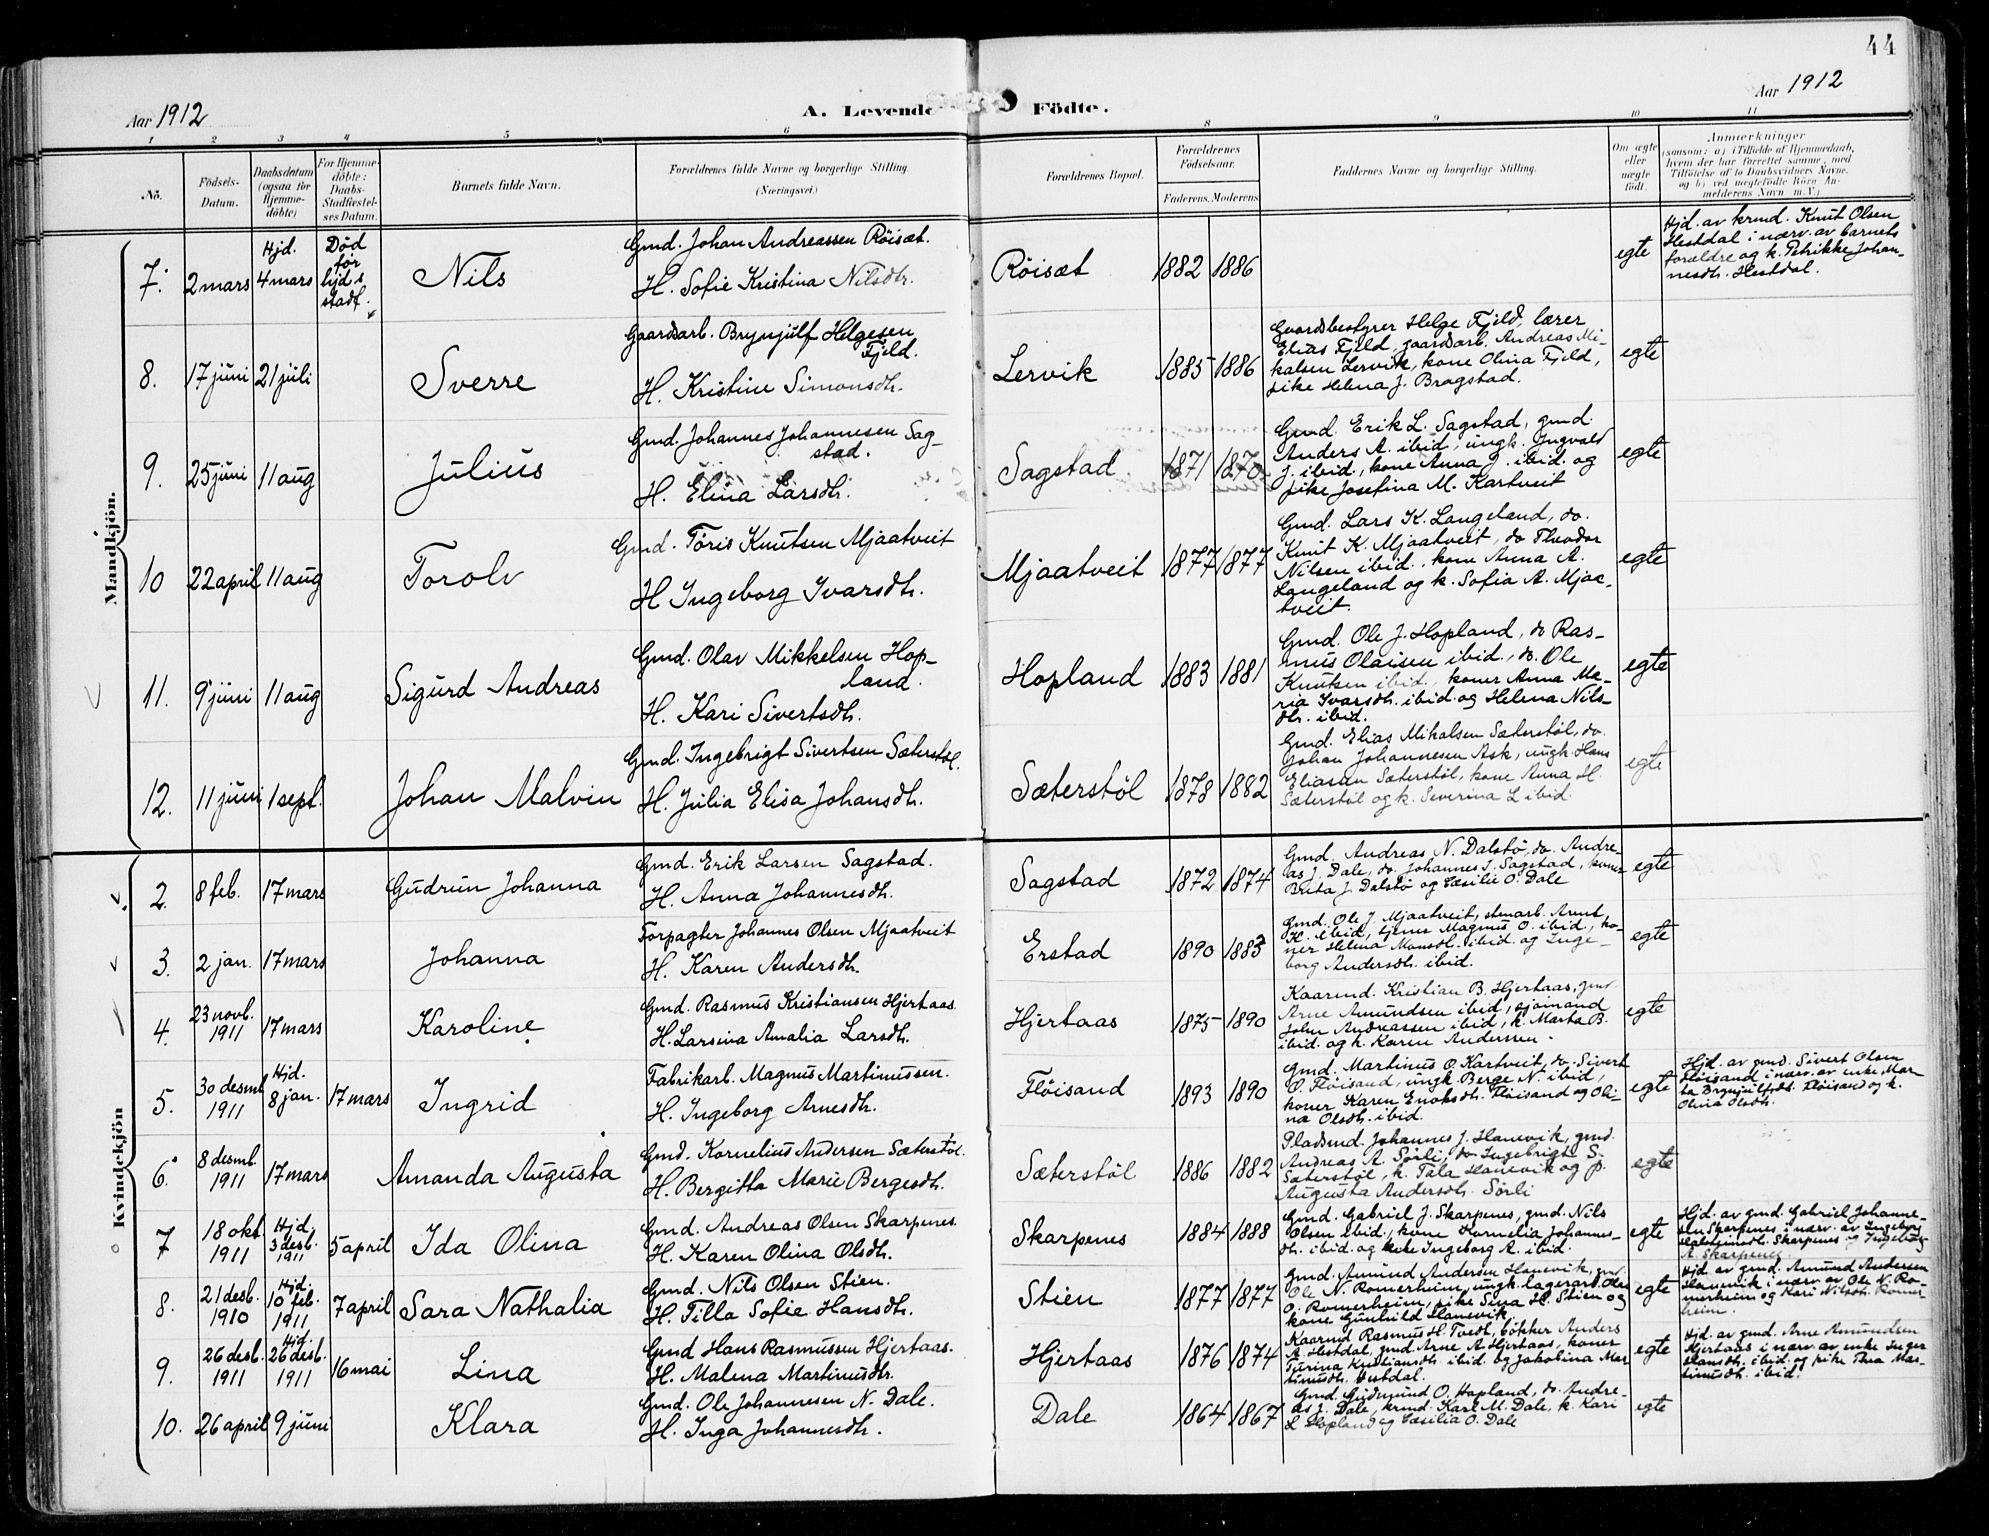 44
Aar 1912
A. Levende Födte.
Aar 1912
1 2 3 4 5 6 8 9 10 11
No.
Födsels-Datum.
Daabsdatum (ogsaa for Hjemme-döbte)
For Hjemme-döbte: Daabs-Stadfæstel-ses Datum.
Barnets fulde Navn.
Forældrenes fulde Navne og borgerlige Stilling.
(Næringsvei.)
Forældrenes Bopæl.
Forældrenes Födselsaar.
Faderens. Moderens
Faddernes Navne og borgerlige Stilling.
Om ægte eller uægte födt.
Anmærkninger
(saasom: a) i Tilfælde af Hjemmedaab,
hvem der har forrettet samme, med
Tilföielse af to Daabsvidners Navne,
og b) ved uægtefödte Börn An-
melderens Navn m. V.)
Mandkjön.
7. 2 mars Hjd. 4 mars Død før hjd.s stadf. Nils
Gmd. Johan Andreassen Röisæt.
H. Sofie Kristina Nilsdtr.
Röisæt 1882 1886 egte
Hjd. av krmd. Knut Olsen
Hestdal i nærv. av barnets
forældre og k. Petrikke Johan-
nesdh. Hestdal.
8. 17 juni 21 juli Sverre
Gaardsarb. Brynjulf Helgesen
Fjeld.
H. Kristine Simonsdh.
Lervik 1885 1886
Gaardsbestyrer Helge Fjeld, lærer
Elias Fjeld, gaardsarb. Andreas Mi-
kalsen Lervik, kone Olina Fjeld,
pike Helena J. Bragstad.
egte
9. 25 juni 11 aug Julius
Gmd. Johannes Johannesen Sag-
stad.
H. Elina Larsdh.
Sagstad 1871 1870
Gmd. Erik L. Sagstad, gmd.
Anders A. ibid, ungk. Ingvald
J. ibid., kone Anna J. ibid. og
pike Josefina M. Kartveit
egte
10 22 april 11 aug Torolv
Gmd. Töris Knutsen Mjaatveit
H Ingeborg Ivarsdh.
Mjaatveit 1877 1877
Gmd. Lars K. Langeland, do.
Knut K. Mjaatveit, do Theodor
Nilsen ibid., kone Anna A.
Langeland og k. Sofia A. Mjaa-
tveit.
egte
11. 9 juni 11 aug Sigurd Andreas
Gmd. Olav Mikkelsen Hop-
land.
H. Kari Sivertsdh.
Hopland 1883 1881
Gmd. Ole J. Hopland, do Ras-
mus Olaisen ibid., do. Ole
Knutsen ibid., koner Anna Ma-
ria Ivarsdh. ibid. og Helena Nils-
dh. ibid.
egte
12. 11 juni 1 sept. Johan Malvin
Gmd. Ingebrigt Sivertsen Sæterstøl.
H. Julia Elisa Johansdh.
Sæterstöl 1878 1882
Gmd. Elias Mikalsen Sæterstøl, do.
Johan Johannesen Ask, ungk. Hans
Eliasen Sæterstøl, kone Anna H.
Sæterstøl og k. Severina L ibid.
egte
Kvindekjön
2. 8 feb. 17 mars Gudrun Johanna
Gmd. Erik Larsen Sagstad.
H. Anna Johannesdh.
Sagstad 1872 1874
Gmd. Andreas N. Dalstø, do. Andre-
as J. Dale, do. Johannes J. Sagstad, koner
Brita J. Dalstø og Cæsilie O. Dale
egte
3. 2 jan. 17 mars Johanna
Forpagter Johannes Olsen Mjaatveit
H. Karen Andersdh.
Erstad 1890 1883
Gmd. Ole J. Mjaatveit, stenarb. Arnt
H. ibid, tjener Magnus O. ibid., ko-
ner Helena Monsdh. ibid. og Inge-
borg Andersdh. ibid.
egte
4. 23 novb. 1911 17 mars Karoline
Gmd. Rasmus Kristiansen Hjertaas.
H. Larsina Amalia Larsdh.
Hjertaas 1875 1890
Kaarmd. Kristian B. Hjertaas, gmd.
Arne Amundsen ibid, sjømand
John Andreassen ibid, k. Marta B.
ibid. og k. Karen Andersen.
egte
5. 30 desmb 1911 Hjd. 8 jan. 17 mars Ingrid
Fabrikarb. Magnus Martinussen.
H. Ingeborg Arnesdh.
Flöisand 1893 1890
Gmd. Martinus O. Kartveit, do. Sivert
O. Fløisand, ungk. Berge N. ibid,
koner Karen Enoksdh. Fløisand og Oli-
na Olsdh. ibid.
egte
Hjd. av gmd. Sivert Olsen
Fløisand i nærv. av enke Mar-
ta Brynjulfsdh. Fløisand og k.
Olina Olsdh.
6. 8 desmb. 1911 17 mars Amanda Augusta
Gmd. Kornelius Andersen Sæterstøl.
H. Bergitta Marie Bergesdh.
Sæterstöl 1886 1882
Pladsmd. Johannes J. Hanevik, gmd.
Andreas A. Sørli, do Ingebrigt S.
Sæterstøl, k. Tala Hanevik og p.
Augusta Andersdh. Sørli
egte
7 18 okt. 1911 Hjd. 3 desb. 1911 5 april Ida Olina
Gmd. Andreas Olsen Skarpenes.
H. Karen Olina Olsdh.
Skarpenes 1884 1888
Gmd. Gabriel J. Skarpenes, gmd. Nils
Olsen ibid., kone Kornelia Johannes-
dh. ibid. og pike Ingeborg A. ibid.
egte
Hjd. av gmd. Gabriel Johanne-
sen Skarpenes i nærv. av Ingeborg
Skarpenes og Ingeborg
A. Skarpenes.
8. 21 desb. 1910 Hjd. 10 feb. 1911 7 april Sara Nathalia
Gmd. Nils Olsen Stien.
H. Tilla Sofie Hansdh.
Stien 1877 1877
Gmd. Amund Andersen Hanevik, gmd.
Ole N. Romerheim, ungk. lagerarb. Olai
O. Romerheim, pike Sina H. Stien og
kone Gunhild Hanevik
egte
Hjd. av gmd. Amund Andersen
Hanevik i nærv. av Ole N. Ro-
merheim og Kari Nilsdh. Romer-
heim.
9. 26 desb. 1911 Hjd. 26 desb. 1911 16 mai Lina
Gmd Hans Rasmussen Hjertaas.
H. Malena Martinusdtr.
Hjertaas 1876 1874
Kaarmd Rasmus H. Tvedt, bøkker Anders
A. Hestdal, gmd Arne A Hjertaas, koner
Turina Kristiansdh. ibid og Jakobina Mar
tinusdh. Hestdal.
egte
Hjd. av gmd. Arne Amundsen
Hjertaas i nærv. av enke Inger
Hansdh. ibid. og pike Thea Mar-
tinusdh. ibid.
10. 26 april 9 juni Klara
Gmd. Ole Johannesen N. Dale.
H. Inga Johannesdh.
Dale 1864 1867
Gmd. Gudmund O. Hopland, do. Andre-
as J. Dale, krmd. Karl M. Dale, k. Kari
L Hopland og Cæsilia O. Dale
egte